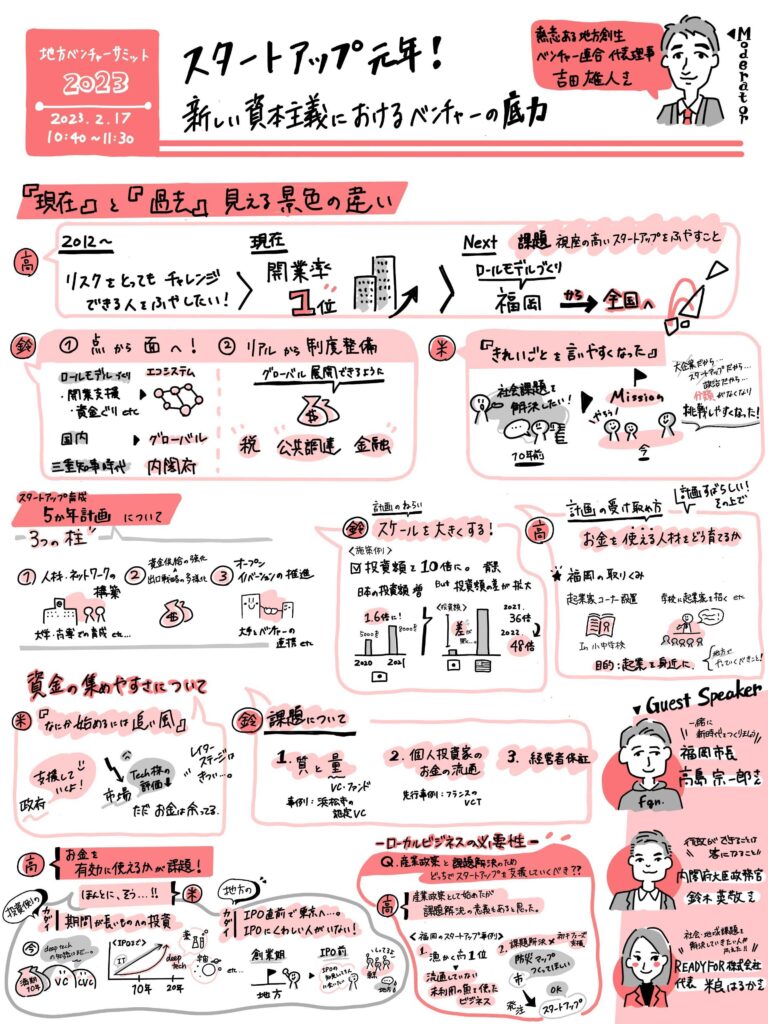 地方ベンチャーサミット
2023
2023.2.17
10:40~11:30
スタートアップ元年!
新しい資本主義におけるベンチャーの底力
熱意ある地方創生
ベンチャー連合 代表理事
吉田 雄人さん
Moderator
『現在』と『過去』見える景色の違い
高
2012~
リスクをとっても チャレンジ
できる人をふやしたい!
現在
開業率
1位
Next 課題 視座の高いスタートアップをふやすこと
ロールモデルづくり
福岡 から 全国へ
鈴
① 点から 面へ!
ロールモデルづくり
・開業支援
・資金ぐり etc
エコシステム
国内
グローバル
三重知事時代
内閣府
② リアル から 制度整備
グローバル 展開できるように
税 公共調達 金融
米
『きれいごとを言いやすくなった』
社会課題を
解決したい!
10年前
Mission
やろう!
今
大企業だから…
スタートアップだから…
政治だから…
分類がなくなり
挑戦しやすくなった!
スタートアップ育成
5か年計画 について
3つの柱
① 人材・ネットワークの
構築
大学・高専での育成 etc…
② 資金供給の強化
出口戦略の多様化
③ オープン
イノベーションの推進
大手とベンチャーの
連携 etc
計画のねらい
鈴
スケールを大きくする!
<施策例>
投資額を10倍に。 背景
日本の投資額 増
But 投資額の差が拡大
1.6倍に!
5000億
8000億
2020 2021
<投資額>
差が
2021.
36倍
2022.
48倍
高
計画の受け取め方
計画すばらしい!
その上で
お金を使える人材をどう育てるか
★ 福岡の取りくみ
起業家コーナー設置
In 小中学校
学校に起業家を招く etc
目的:起業を身近に。
地方で
やっていくべきこと!
資金の集めやすさについて
米
『なにか始めるには追い風』
支援して
いくよ!
政府
市場
Tech株の
評価↓
レイター
ステージは
きつい…。
ただ お金は余ってる.
鈴
課題について
1. 質と量
VC・ファンド
事例:浜松市の
認定VC
2. 個人投資家の
お金の流通
先行事例:フランスの
VCT
3. 経営者保証
▼Guest Speaker
一緒に
新時代をつくりましょう
福岡市長
高島 宗一郎さん
fgn.
行政ができることは
客になること
内閣府大臣政務官
鈴木 英敬さん
社会・地域課題を
解決していきたい人が
READYFOR 株式会社
代表 米良はるかさん
高
お金を
有効に使えるかが課題!
ほんとに、そう…!!
米
投資側の
カダイ
期間が長いものへの投資
今
deep techの
満期
10年
VC
CVC
<IPOまで>
IT
deep
tech
10年 20年
薬
宇宙
etc
地方の
カダイ
IPO直前で東京へ…。
IPOにくわしい人がいない!
創業期
地方
IPO前
IPOの
知見もってる人
に会いたい
ーローカルビジネスの必要性ー
Q. 産業政策と課題解決のため
どっちでスタートアップを支援していくべき??
高
産業政策として始めたが
課題解決の意義もあると思った。
<福岡のスタートアップ事例>
1. 漁かく高1位
流通していない
未利用の魚を使った
ビジネス
2. 課題解決 ×
防災マップ
つくってほしい
市
OK
発注
スタートアップ